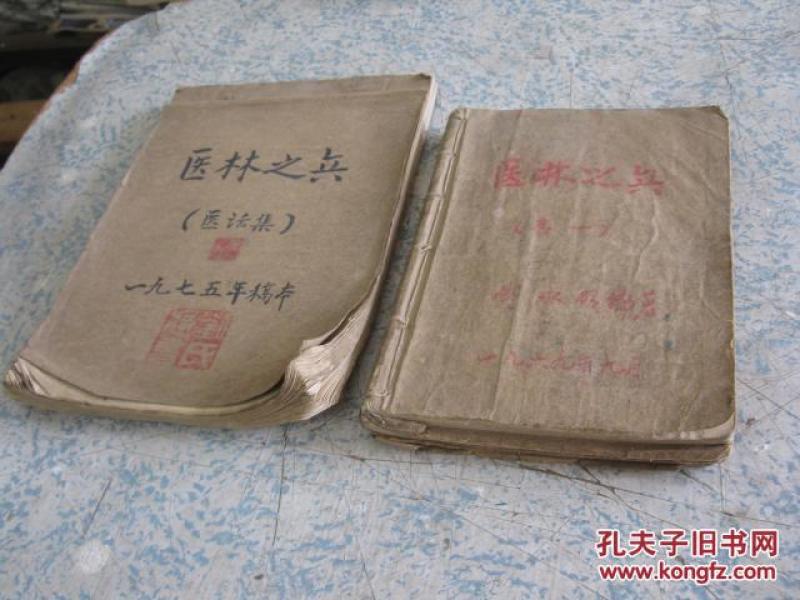 医林之兵
（医话集）
一九七五年稿本
医林之兵
编著
一九六九年九月
孔夫子旧书网
www.kongfz.com